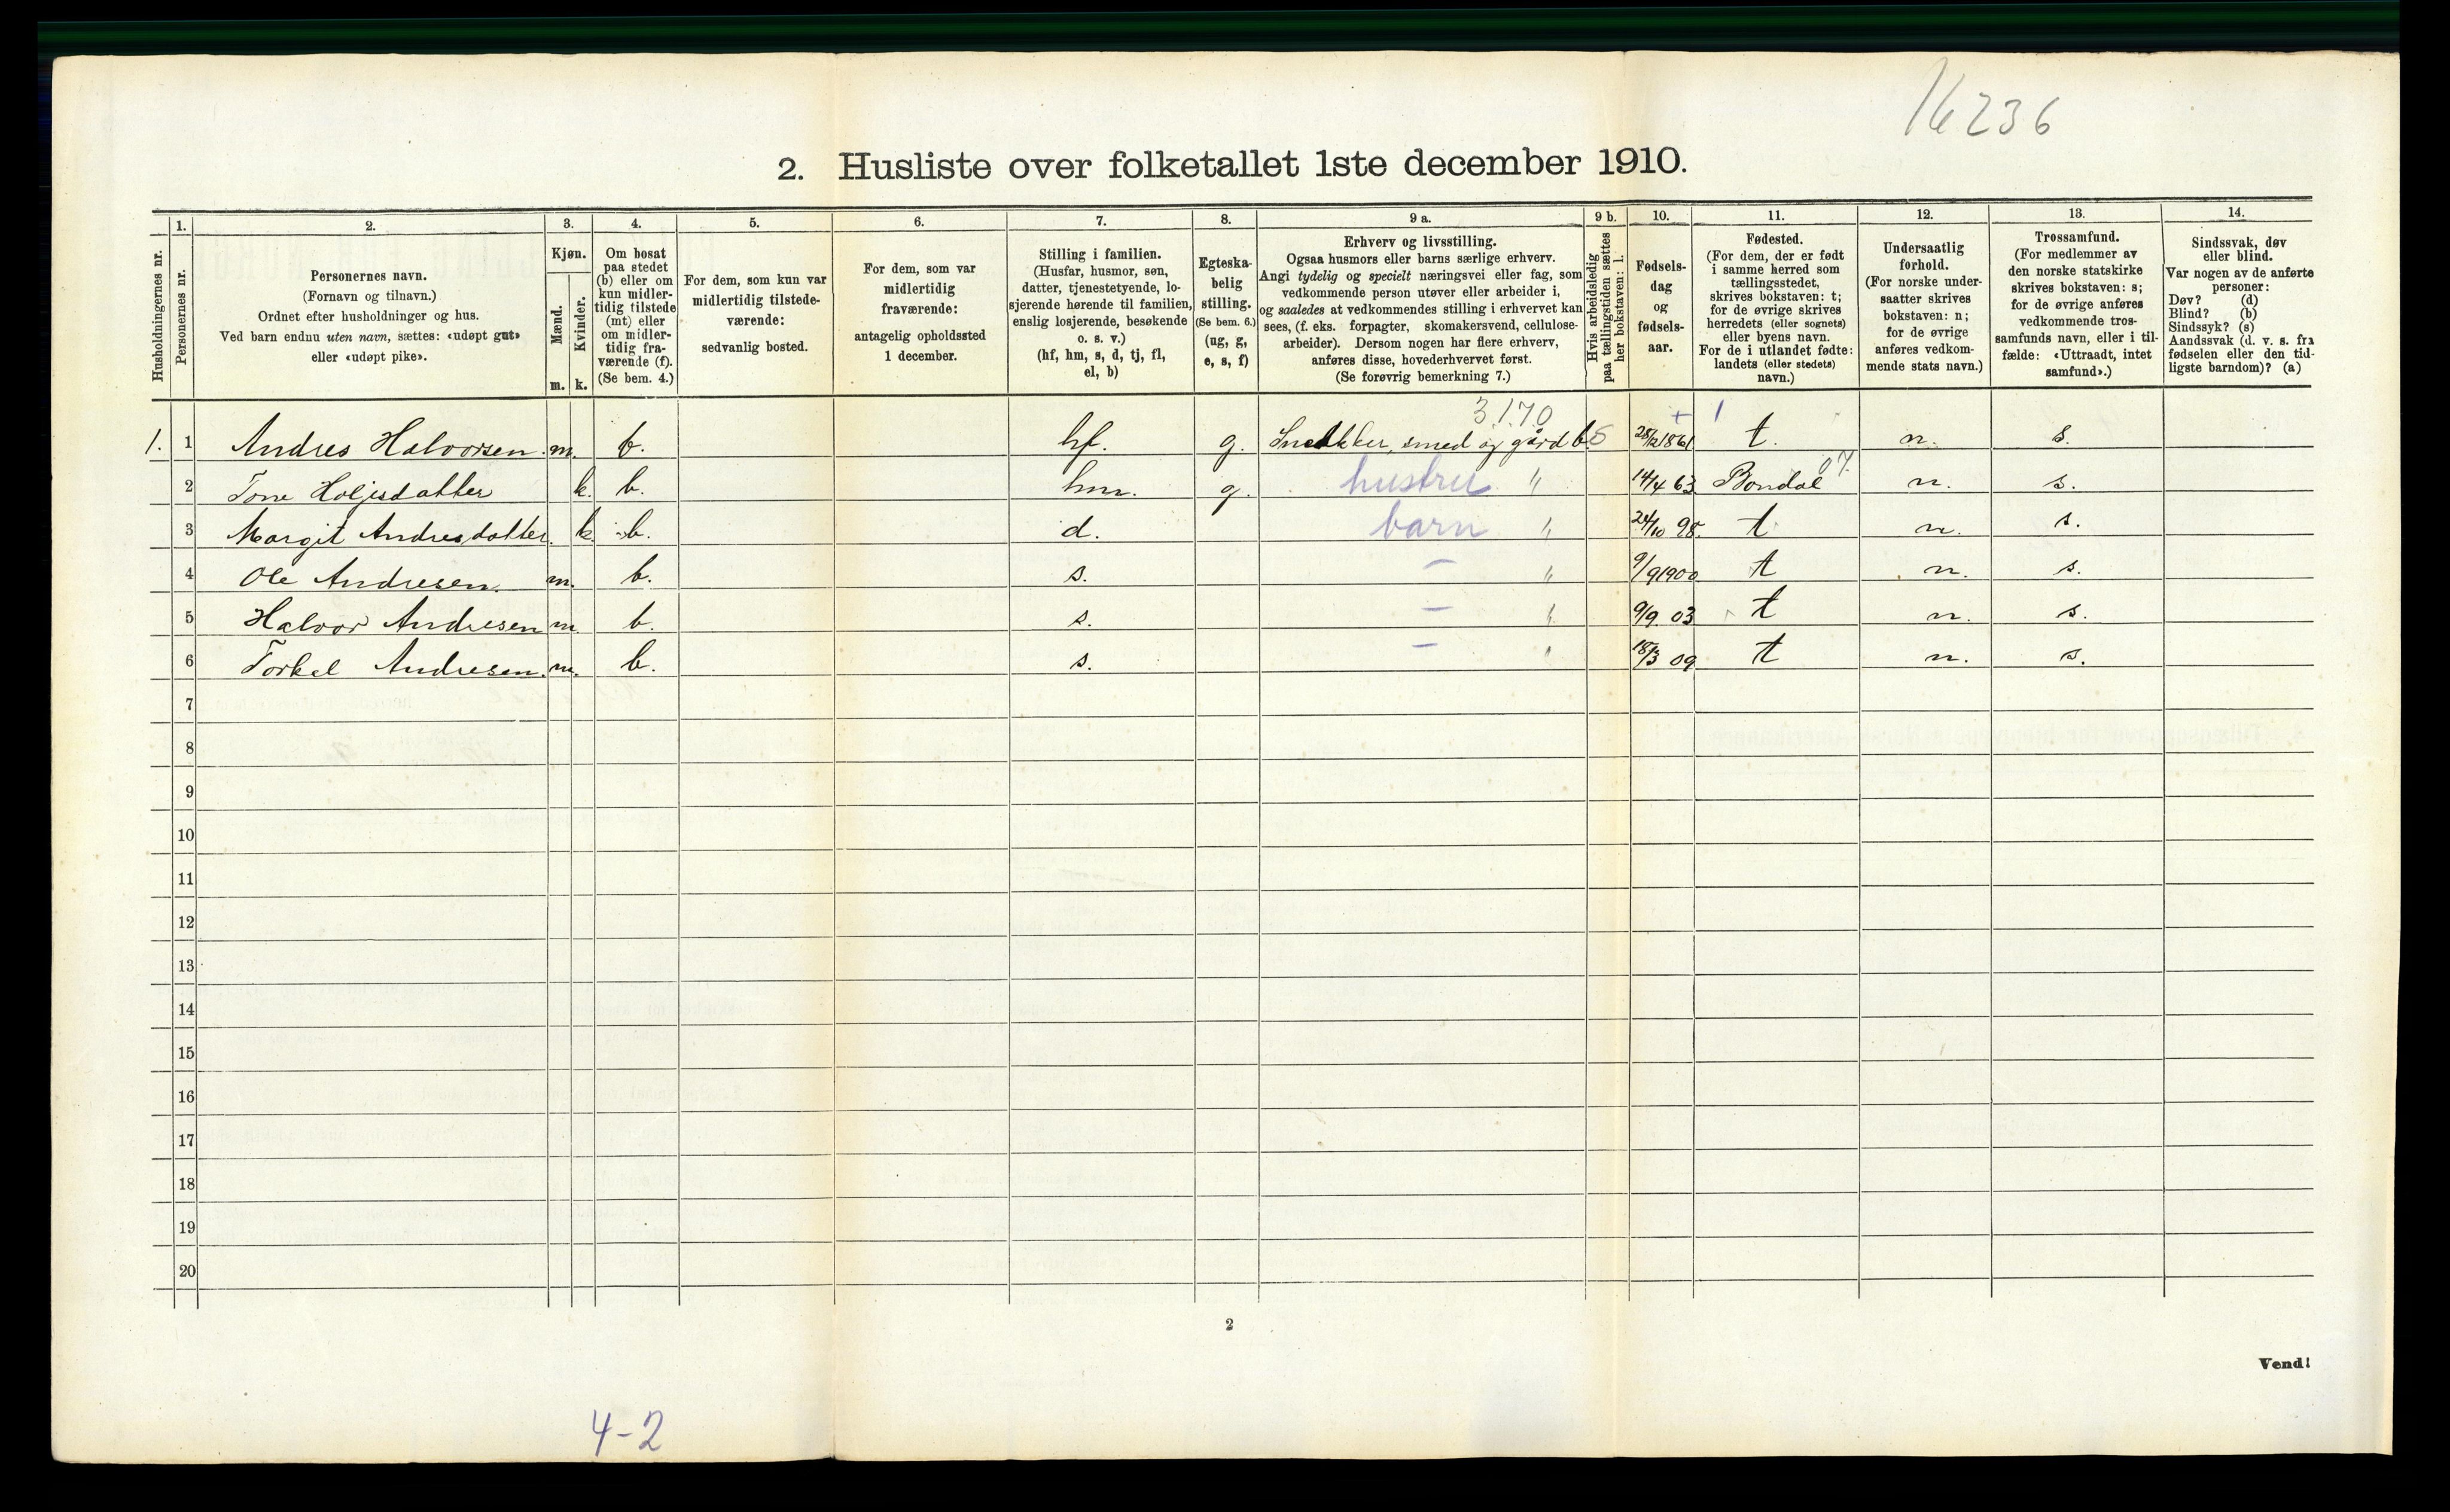 16236
2. Husliste over folketallet 1ste december 1910.
1. 2. 3. 4. 5. 6. 7. 8. 9 a. 9 b. 10. 11. 12. 13. 14.
Husholdningernes nr.
Personernes nr.
Personernes navn.
(Fornavn og tilnavn.)
Ordnet efter husholdninger og hus.
Ved barn endnu uten navn, sættes: «udøpt gut»
eller «udøpt pike».
Kjøn.
Mænd.
Kvinder.
m. k.
Om bosat
paa stedet
(b) eller om
kun midler-
tidig tilstede
(mt) eller
om midler-
tidig fra-
værende (f).
(Se bem. 4.)
For dem, som kun var
midlertidig tilstede-
værende:
sedvanlig bosted.
For dem, som var
midlertidig
fraværende:
antagelig opholdssted
1 december.
Stilling i familien.
(Husfar, husmor, søn,
datter, tjenestetyende, lo-
sjerende hørende til familien,
enslig losjerende, besøkende
o. s. v.)
(hf, hm, s, d, tj, fl,
el, b)
Egteska-
belig
stilling.
(Se bem. 6.)
(ug, g,
e, s, f)
Erhverv og livsstilling.
Ogsaa husmors eller barns særlige erhverv.
Angi tydelig og specielt næringsvei eller fag, som
vedkommende person utøver eller arbeider i,
og saaledes at vedkommendes stilling i erhvervet kan
sees, (f. eks. forpagter, skomakersvend, cellulose-
arbeider). Dersom nogen har flere erhverv,
anføres disse, hovederhvervet først.
(Se forøvrig bemerkning 7.)
Hvis arbeidsledig
paa tællingstiden sættes
her bokstaven: l.
Fødsels-
dag
og
fødsels-
aar.
Fødested.
(For dem, der er født
i samme herred som
tællingsstedet,
skrives bokstaven: t;
for de øvrige skrives
herredets (eller sognets)
eller byens navn.
For de i utlandet fødte:
landets (eller stedets)
navn.)
Undersaatlig
forhold.
(For norske under-
saatter skrives
bokstaven: n;
for de øvrige
anføres vedkom-
mende stats navn.)
Trossamfund.
(For medlemmer av
den norske statskirke
skrives bokstaven: s;
for de øvrige anføres
vedkommende tros-
samfunds navn, eller i til-
fælde: «Uttraadt, intet
samfund».)
Sindssvak, døv
eller blind.
Var nogen av de anførte
personer:
Døv? (d)
Blind? (b)
Sindssyk? (s)
Aandssvak (d. v. s. fra
fødselen eller den tid-
ligste barndom)? (a)
3.1.70 + 1
1. 1 Andres Halvorsen. m. b. hf. g. Snedkker, smed og gård b. 28/12 1861 t. n. s.
2 Tone Holjesdatter k. b. hm. g. hustru " 14/4 63 Bondal 07. n. s.
3 Margit Andresdatter. k. b. d. barn " 24/10 98. t n. s.
4 Ole Andresen. m. b. s. — " 9/9 1900 t n. s.
5 Halvor Andresen m. b. s. — " 9/9. 03 t n. s.
6 Torkel Andresen. m. b. s. — " 18/3 09 t n. s.
7
8
9
10
11
12
13
14
15
16
17
18
19
20
2
Vend!
4-2